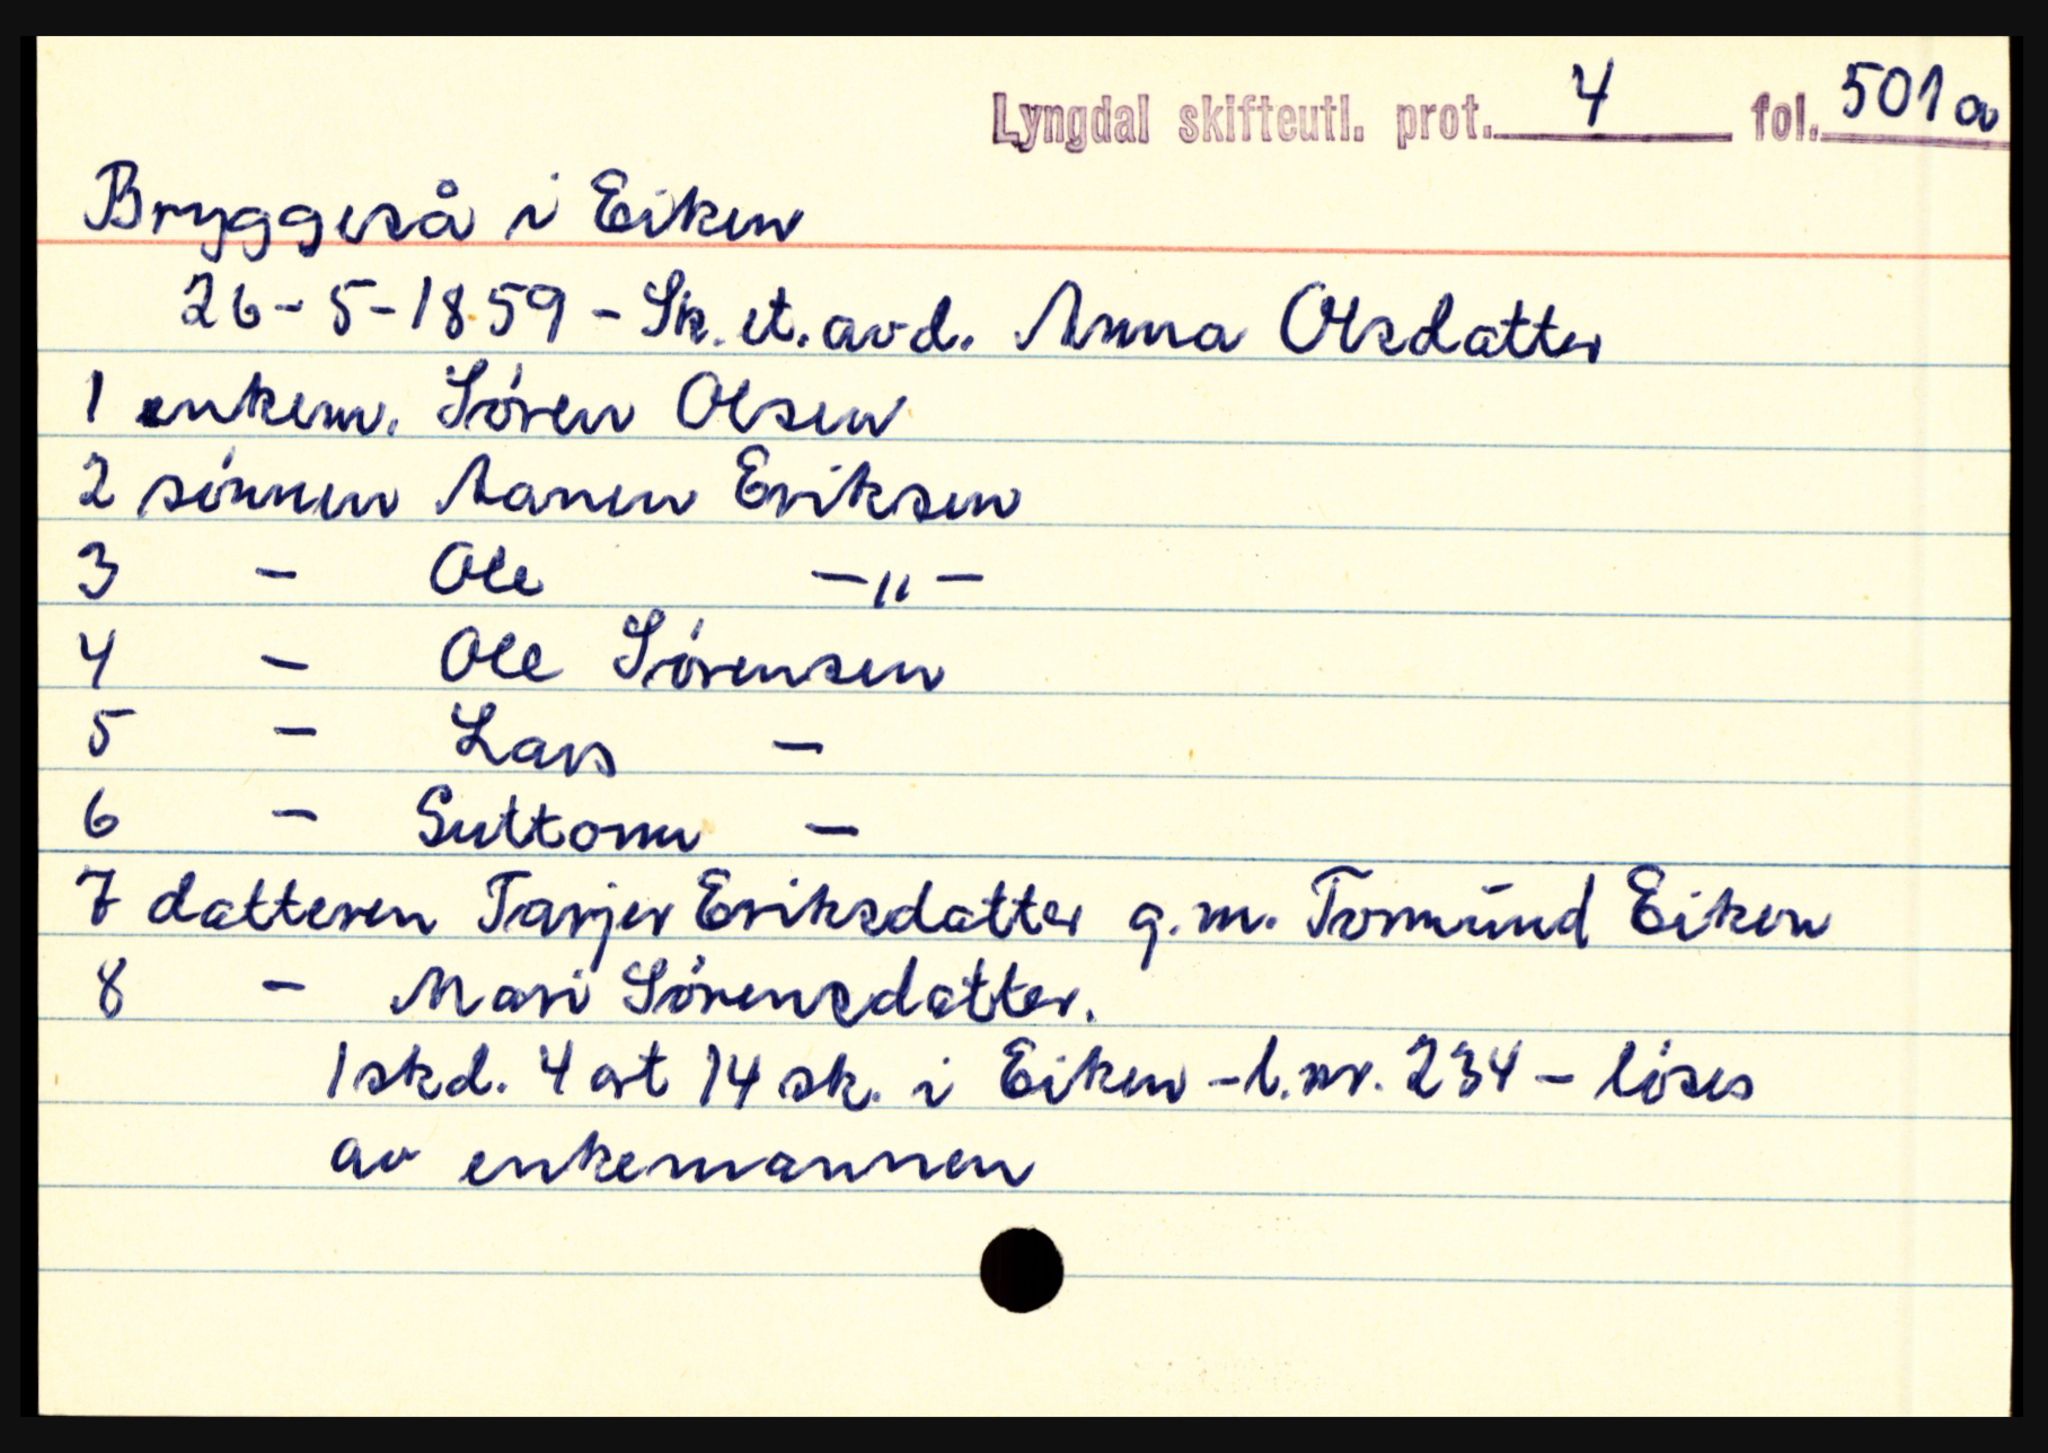 Lyngdal skifteutl. prot. 4 fol. 501a
Bryggeså i Eiken
26-5-1859 - Sk. et. avd. Anna Olsdatter
1 enkem. Søren Olsen
2 sønnen Aanen Eriksen
3 - Ole -"-
4 - Ole Sørensen
5 - Lars -
6 - Guttorm -
7 datteren Tarjer Eriksdatter g.m. Tormund Eiken
8 - Mari Sørensdatter.
1 skd. 4 ort 14 sk. i Eiken - l.nr. 234 - løses
av enkemannen